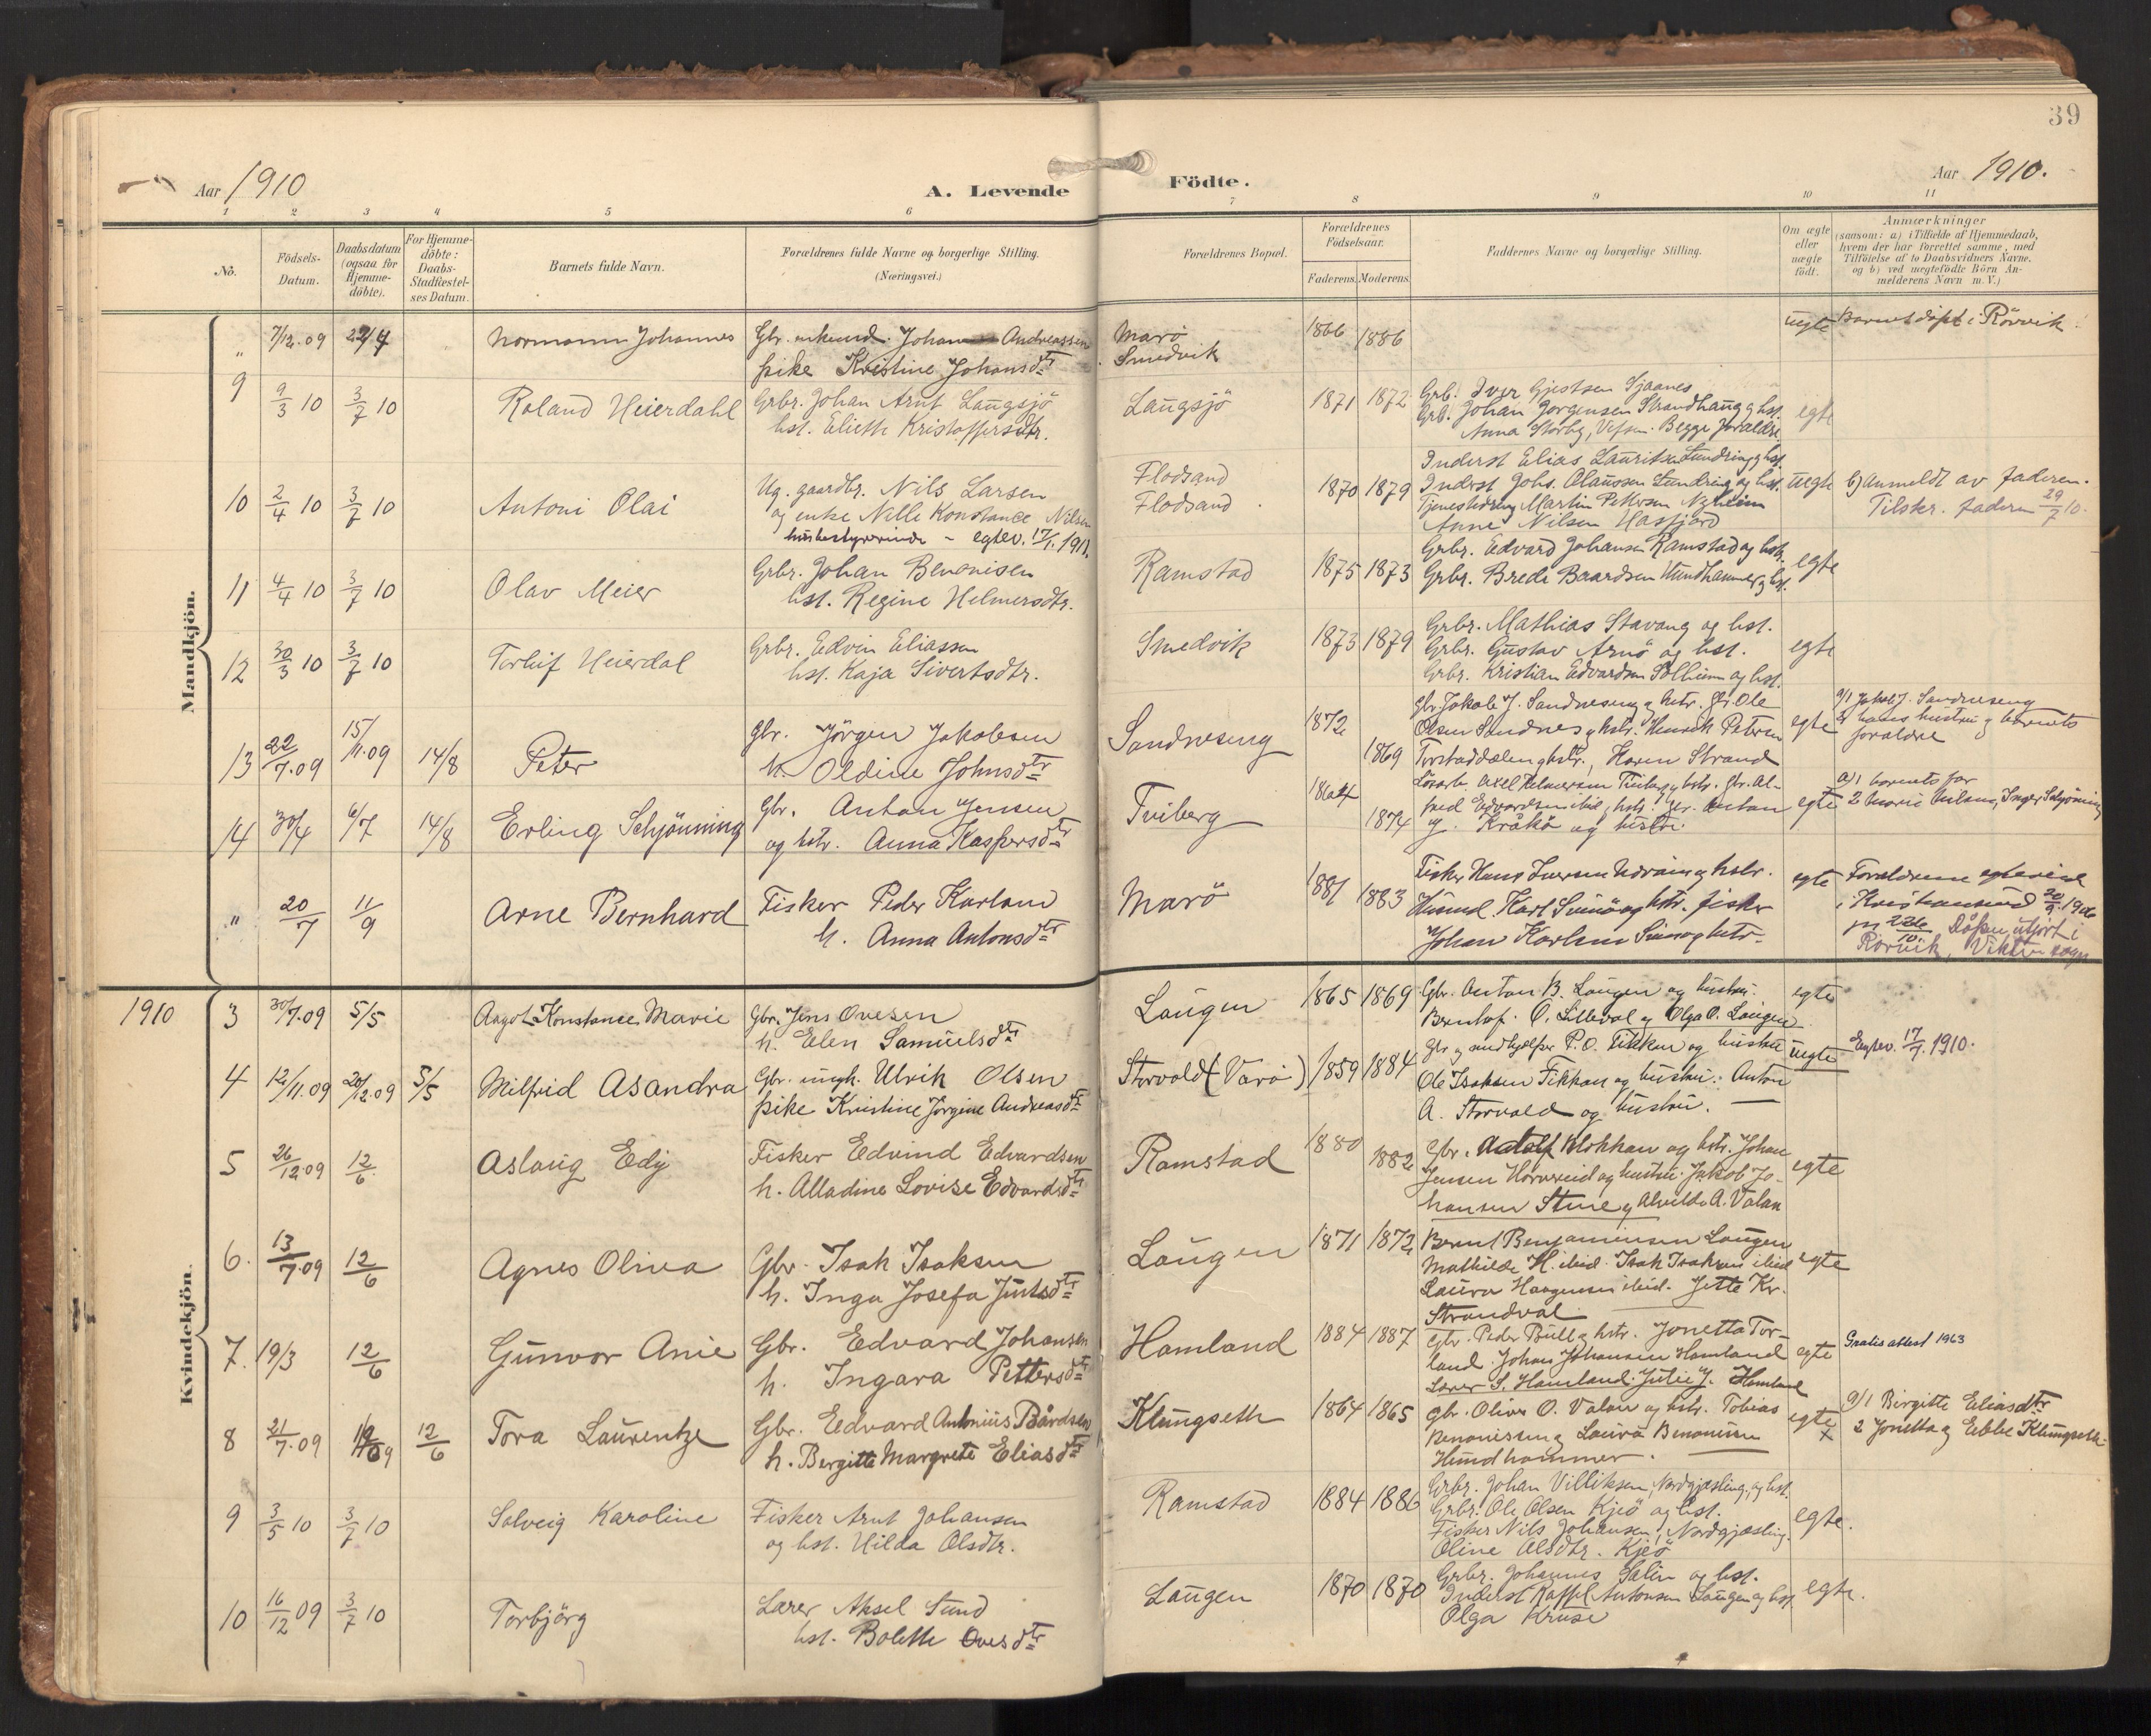 39
Aar 1910
A. Levende
Födte.
Aar 1910.
1 2 3 4 5 6 7 8 9 10 11
No.
Födsels-
Datum.
Daabsdatum
(ogsaa for
Hjemme-
döbte).
For Hjemme-
döbte:
Daabs-
Stadfæstel-
ses Datum.
Barnets fulde Navn.
Forældrenes fulde Navne og borgerlige Stilling.
(Næringsvei.)
Forældrenes Bopæl.
Forældrenes
Födselsaar.
Faderens. Moderens.
Faddernes Navne og borgerlige Stilling.
Om ægte
eller
uægte
födt.
Anmærkninger
(saasom: a) i Tilfælde af Hjemmedaab,
hvem der har forrettet samme, med
Tilföielse af to Daabsvidners Navne,
og b) ved uægtefödte Börn An-
melderens Navn m. V.)
Mandkjön.
" 7/12.09 Normann Johannes Gbr. unkarmd. Johan Andreassen Marö 1866 1886 uegte Barnet döpt i Rörvik.
pike Kristine Johansdtr Smedvik
9 9/3 10 3/7 10 Roland Heierdahl Grbr. Johan Arnt Laugsjö Laugsjö 1871 1872 Grb. Iver Gjertsen Sjaanes egte
hst. Eliette Kristoffersdtr. Grb. Johan Jörgensen Strandhaug og hst.
Anna Storbg, Vefsn. Begge foraldre
10 2/4 10 3/7 10 Antoni Olai Ug. gaardbr. Nils Larsen Flodsand 1870 1879 Inderst Elias Lauritsen Lundring og hst. uegte b) Anmeldt av faderen.
og enke Nelle Konstance Nilsen Flodsand Inderst Johs. Olaussen Lundring og hst. Tilskr. faderen 29/7 10.
husbestyrerinde - egtev. 17/1. 1911. Tjenestedreng Martin Pettersen Nyheim
Anne Nilsen Hasfjord
11 4/4 10 3/7 10 Olav Meier Grbr. Johan Benonisen Ramstad 1875 1873 Grbr. Edvard Johansen Ramstad og hst. egte
hst. Regine Helmersdtr. Grbr. Brede Baardsen Hundhammer og hst.
12 30/3 10 3/7 10 Torleif Heierdal Grbr. Edvin Eliassen Smedvik 1873 1879 Grbr. Mathias Stavang og hst. egte
hst. Kaja Sivertsdtr. Grbr. Gustav Arnö og hst.
Grbr. Kristian Edvardsen Solheim og hst.
13 22/7.09 15/11.09 14/8 Peter Gbr. Jörgen Jakobsen Sandneseng 1872 1869 Gbr. Jakob J. Sandneseng og hstr. Gbr. Ole egte a/1 Jakob J. Sandneseng
h. Oldine Johnsdtr Olsen Sandnes og hstr. Henrik Petersen 2 hans hustru og barnets
Torstaddalen og hstr., Haren Strand foraldre
14 30/4 6/7 14/8 Erling Schjönning Gbr. Anton Jensen Tviberg 1864 1874 Lösarb. Axel Helmersen Finberg og hstr. Gbr. Al- egte a/1 barnets far
og hstr. Anna Kaspersdtr fred Edvardsen ibid., hstr. Gbr. Anton 2 Marie Nilsen, Inger Schjönning
J. Kråkö og hustru.
" 20/7 11/9 Arne Bernhard Fisker Peder Karlsen Marö 1881 1883 Fisker Hans Iversen Udvåin og hstr. egte Foraldrene egteviet
h. Anna Antonsdtr Husmd. Karl Svinö og hstr. fisker i Kristiansund 20/9. 1906
Johan Karlsen Svinö og hstr. Dåpen utfört i
Rörvik, Vikten sogn
Kvindekjön.
1910 3 30/7.09 5/5 Aagot Konstance Marie Gbr. Jens Ovesen Laugen 1865 1869 Gbr. Anton B. Laugen og hustru. egte
h. Elen Samuelsdtr Berntof. O. Lilleval og Olga O. Laugen.
4 12/11.09 20/12.09 5/5 Milfrid Asandra Gbr. ungk. Ulrik Olsen Storvold (Varö) 1859 1884 Gbr og medhjelper P. O. Fikkan og hustru uegte Egtev. 17/7. 1910.
pike Kristine Jörgine Andreasdtr Ole Isaksen Fikkan og hustru: Anton
A. Storvold og hustru.
5 26/12.09 12/6 Aslaug Edy Fisker Edvind Edvardsen Ramstad 1880 1882 Gbr. Adolf Blokkan og hstr. Johan egte
h. Alladine Lovise Edvardsdtr Jensen Horvereid og hustru. Jakob Jo-
hansen Stene og Alvilde A. Valan
6. 13/7.09 12/6 Agnes Olivia Gbr. Isak Isaksen Laugen 1871 1872 Bernt Benjaminsen Laugen egte
h. Inga Josefa Justsdtr Mathilde H. ibid. Isak Isaksen ibid
Laura Haagensen ibid. Jette Kr.
Strandval
7. 19/3 12/6 Gunvor Anie Gbr. Edvard Johansen Hamland 1884 1887 Gbr. Peder Bull og hstr. Jonetta Tor- egte Gratis attest 1963
h. Ingara Pettersdtr land. Johan Johansen Hamland
Lærer S. Hamland. Julie J. Hamland
8 21/7.09 12/6 Tora Laurentze Gbr. Edvard Antonius Bårdsen Klungseth 1864 1865 Gbr. Oliver O. Valan og hstr. Tobias egte a/1 Birgitte Eliasdtr
h. Bergitte Margrete Eliasdtr Benonissen og Laura Benonissen 2 Jonetta og Ebbe Klungseth.
Hundhammer.
9 3/5 10 3/7 10 Solveig Karoline Fisker Arnt Johansen Ramstad 1884 1886 Grbr. Johan Villiksen, Nordgjæsling, og hst. egte.
og hst. Hilda Olsdtr. Grbr. Ole Olsen Kjeö og hst.
Fisker Nils Johansen, Nordgjæsling.
Oline Olsdtr. Kjeö
10 16/12 09 3/7 10 Torbjörg Lærer Aksel Sund Laugen 1870 1870 Grbr. Johannes Salin og hst. egte.
hst. Bolette Ovesdtr Inderst Raffel Antonsen Laugen og hst
Olga Kruse